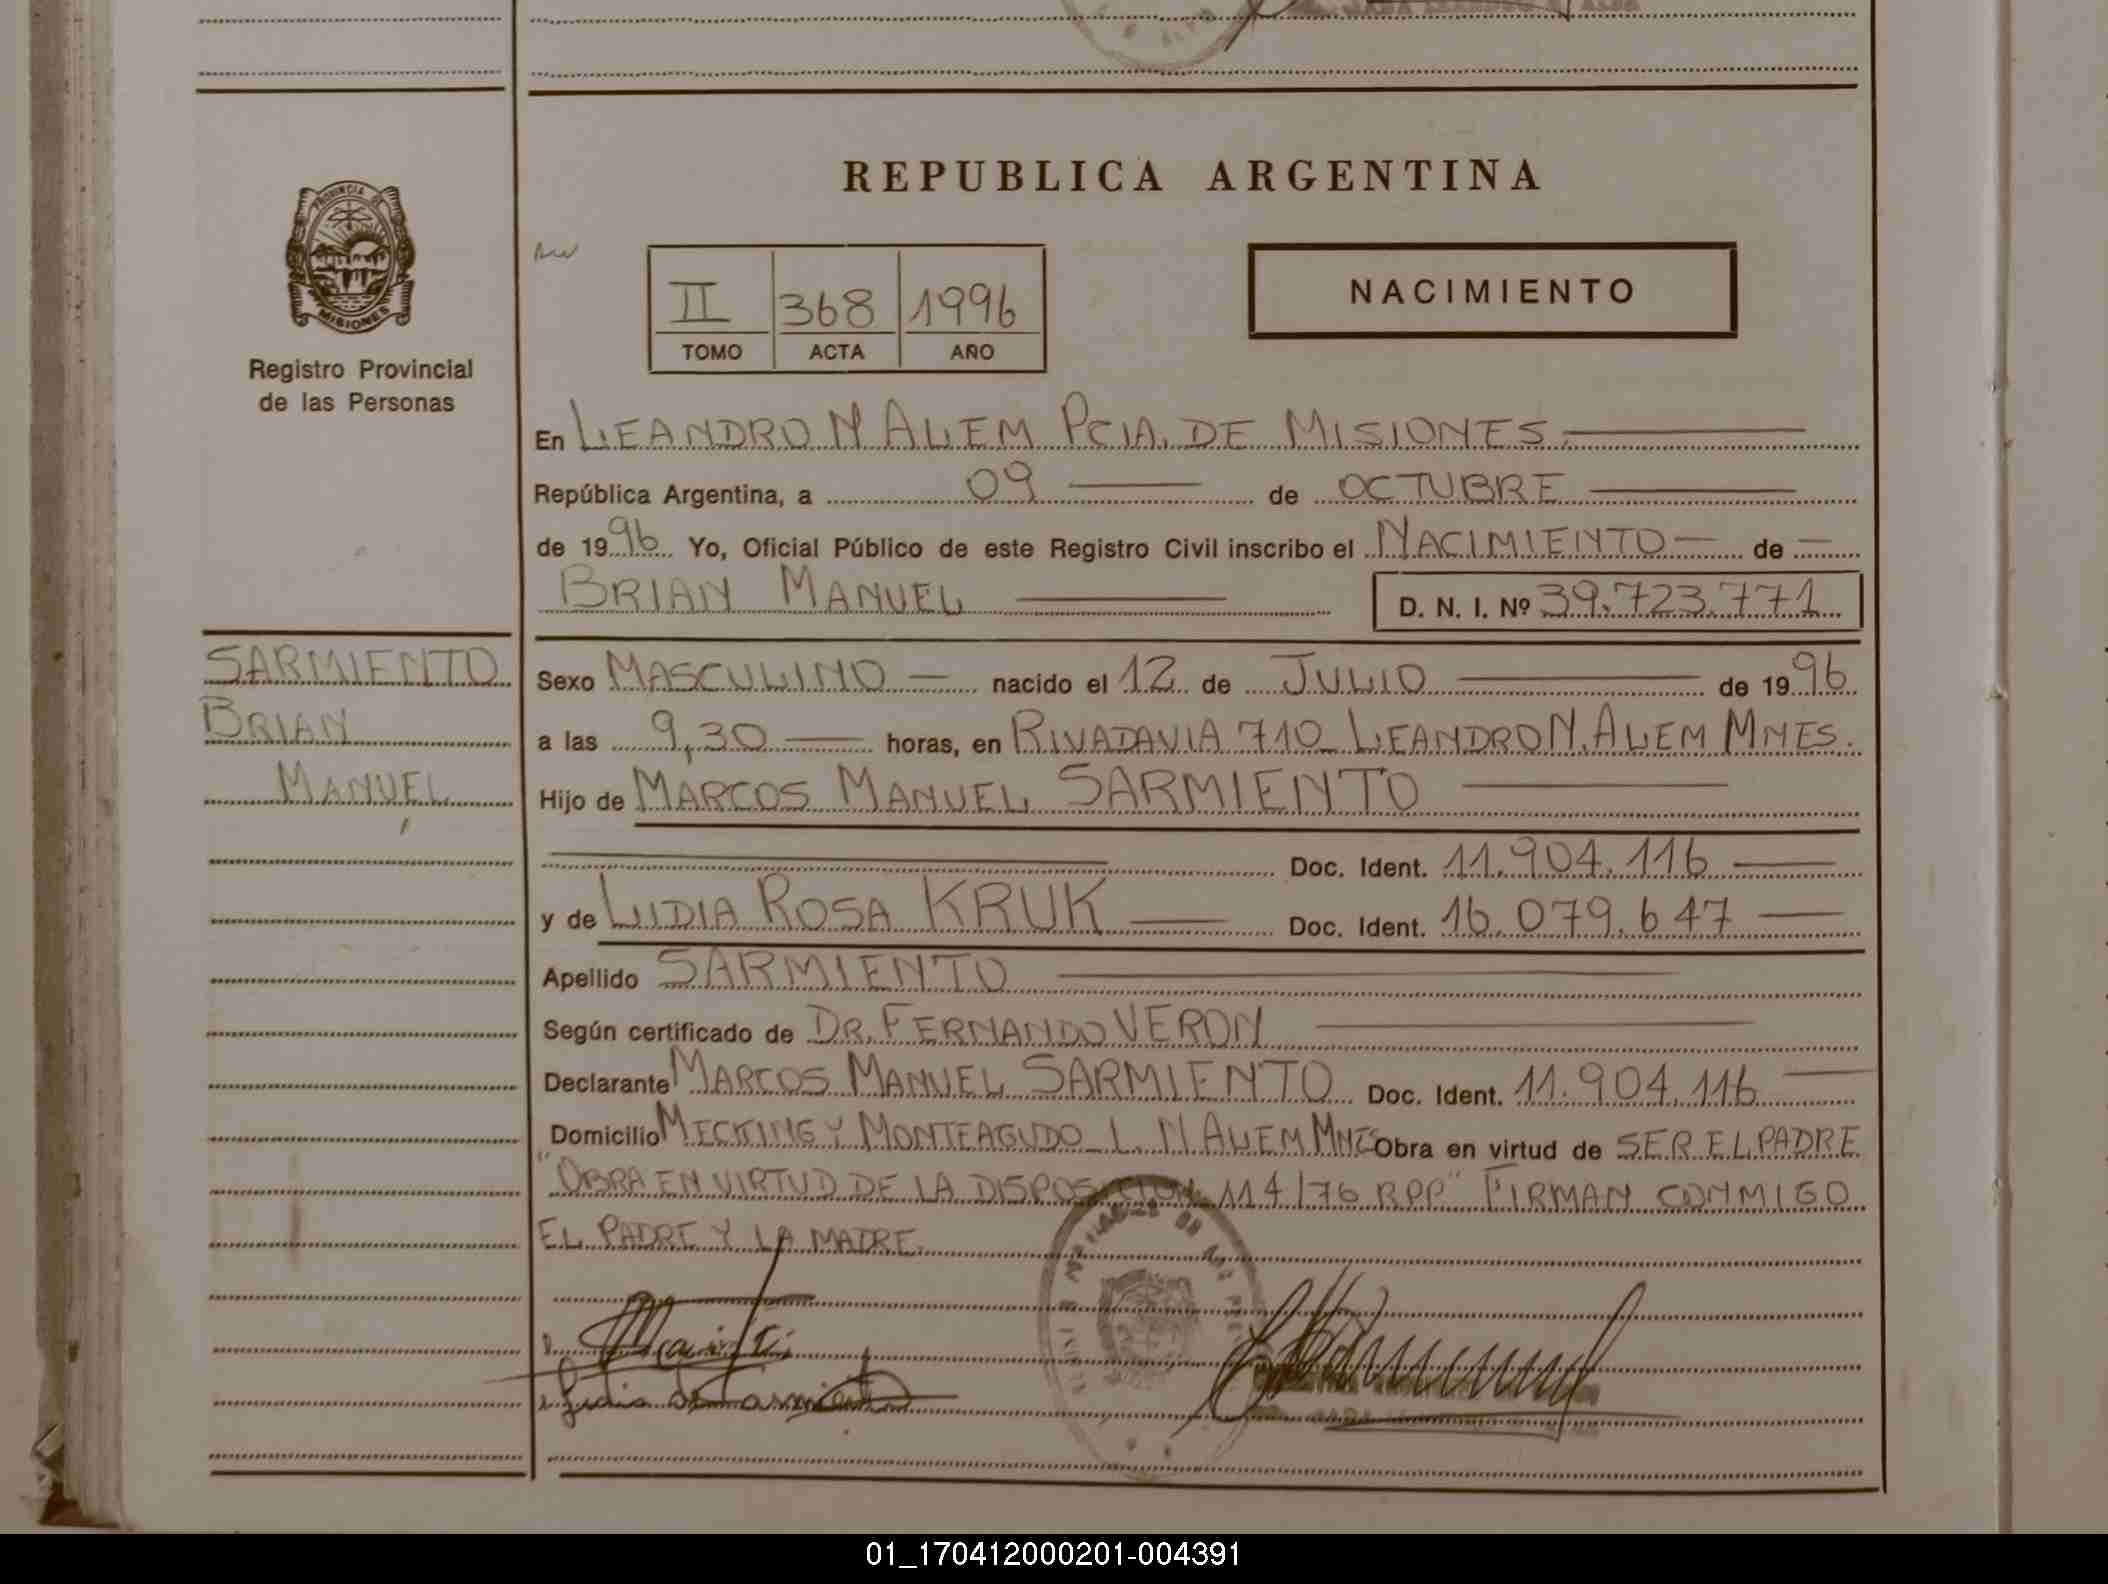 REPUBLICA ARGENTINA
PROVINCIA DE
MISIONES
Registro Provincial
de las Personas
II 368 1996
TOMO ACTA AÑO
NACIMIENTO
En LEANDRO N ALEM PCIA. DE MISIONES.
República Argentina, a 09 de OCTUBRE
de 1996 Yo, Oficial Público de este Registro Civil inscribo el NACIMIENTO de
BRIAN MANUEL D. N. I. Nº 39.723.771
SARMIENTO
BRIAN
MANUEL
Sexo MASCULINO nacido el 12 de JULIO de 1996
a las 9,30 horas, en RIVADAVIA 710_LEANDRO N. ALEM MNES.
Hijo de MARCOS MANUEL SARMIENTO
Doc. Ident. 11.904.116
y de LIDIA ROSA KRUK Doc. Ident. 16.079.647
Apellido SARMIENTO
Según certificado de DR. FERNANDO VERON
Declarante MARCOS MANUEL SARMIENTO Doc. Ident. 11.904.116
Domicilio MECKING Y MONTEAGUDO_L. N ALEM MNES Obra en virtud de SER EL PADRE
"OBRA EN VIRTUD DE LA DISPOSICION 114/76 RPP" FIRMAN CONMIGO
EL PADRE Y LA MADRE.
Lidia de Sarmiento
01_170412000201-004391